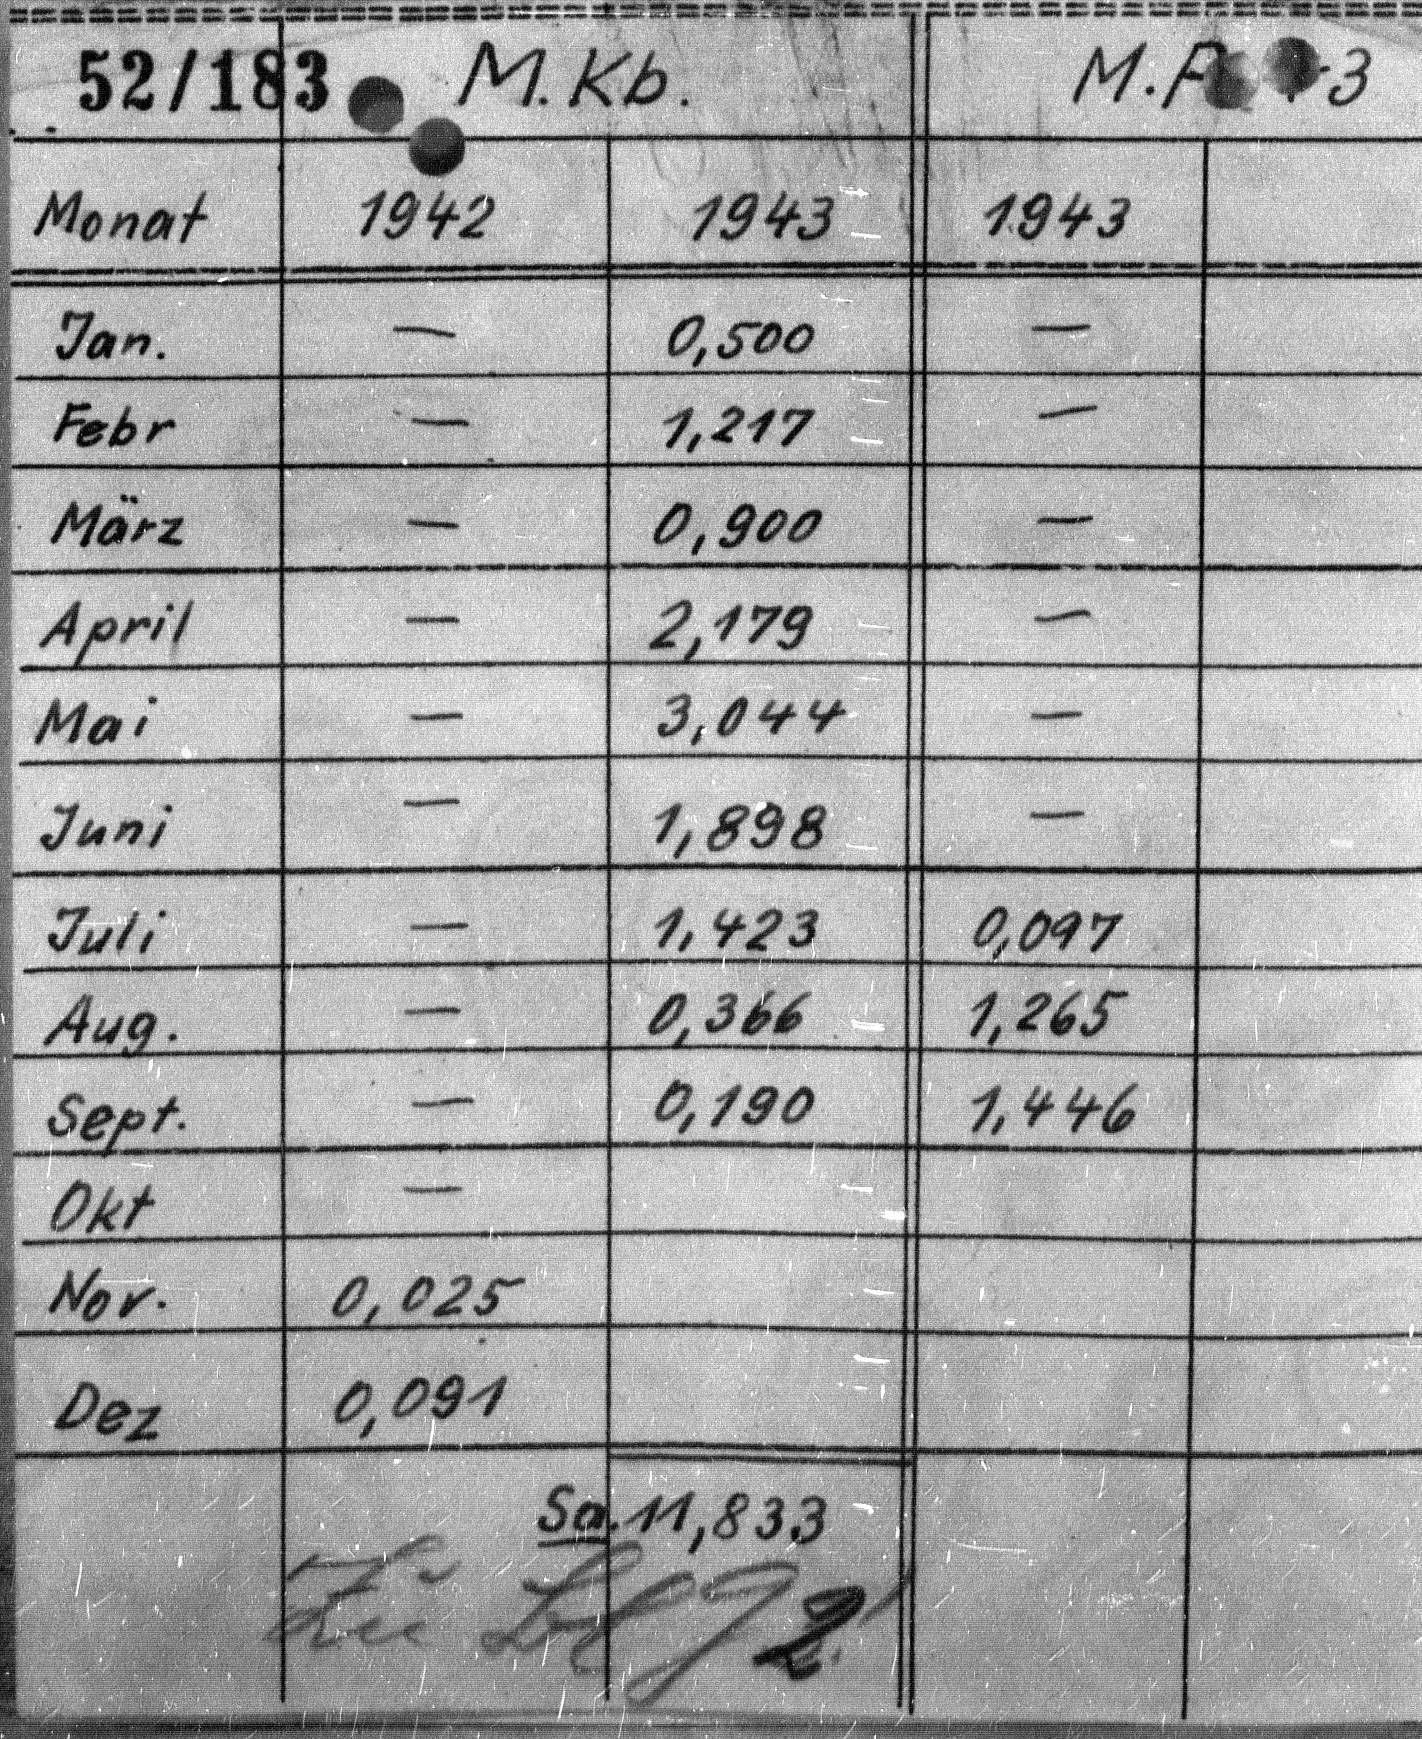 52/183 M.Kb. M. 3
Monat 1942 1943 1943
Jan. — 0,500 —
Febr — 1,217 —
März — 0,900 —
April — 2,179 —
Mai — 3,044 —
Juni — 1,898 —
Juli — 1,423 0,097
Aug. — 0,366 1,265
Sept. — 0,190 1,446
Okt —
Nov. 0,025
Dez 0,091
Sa. 11,833
2.